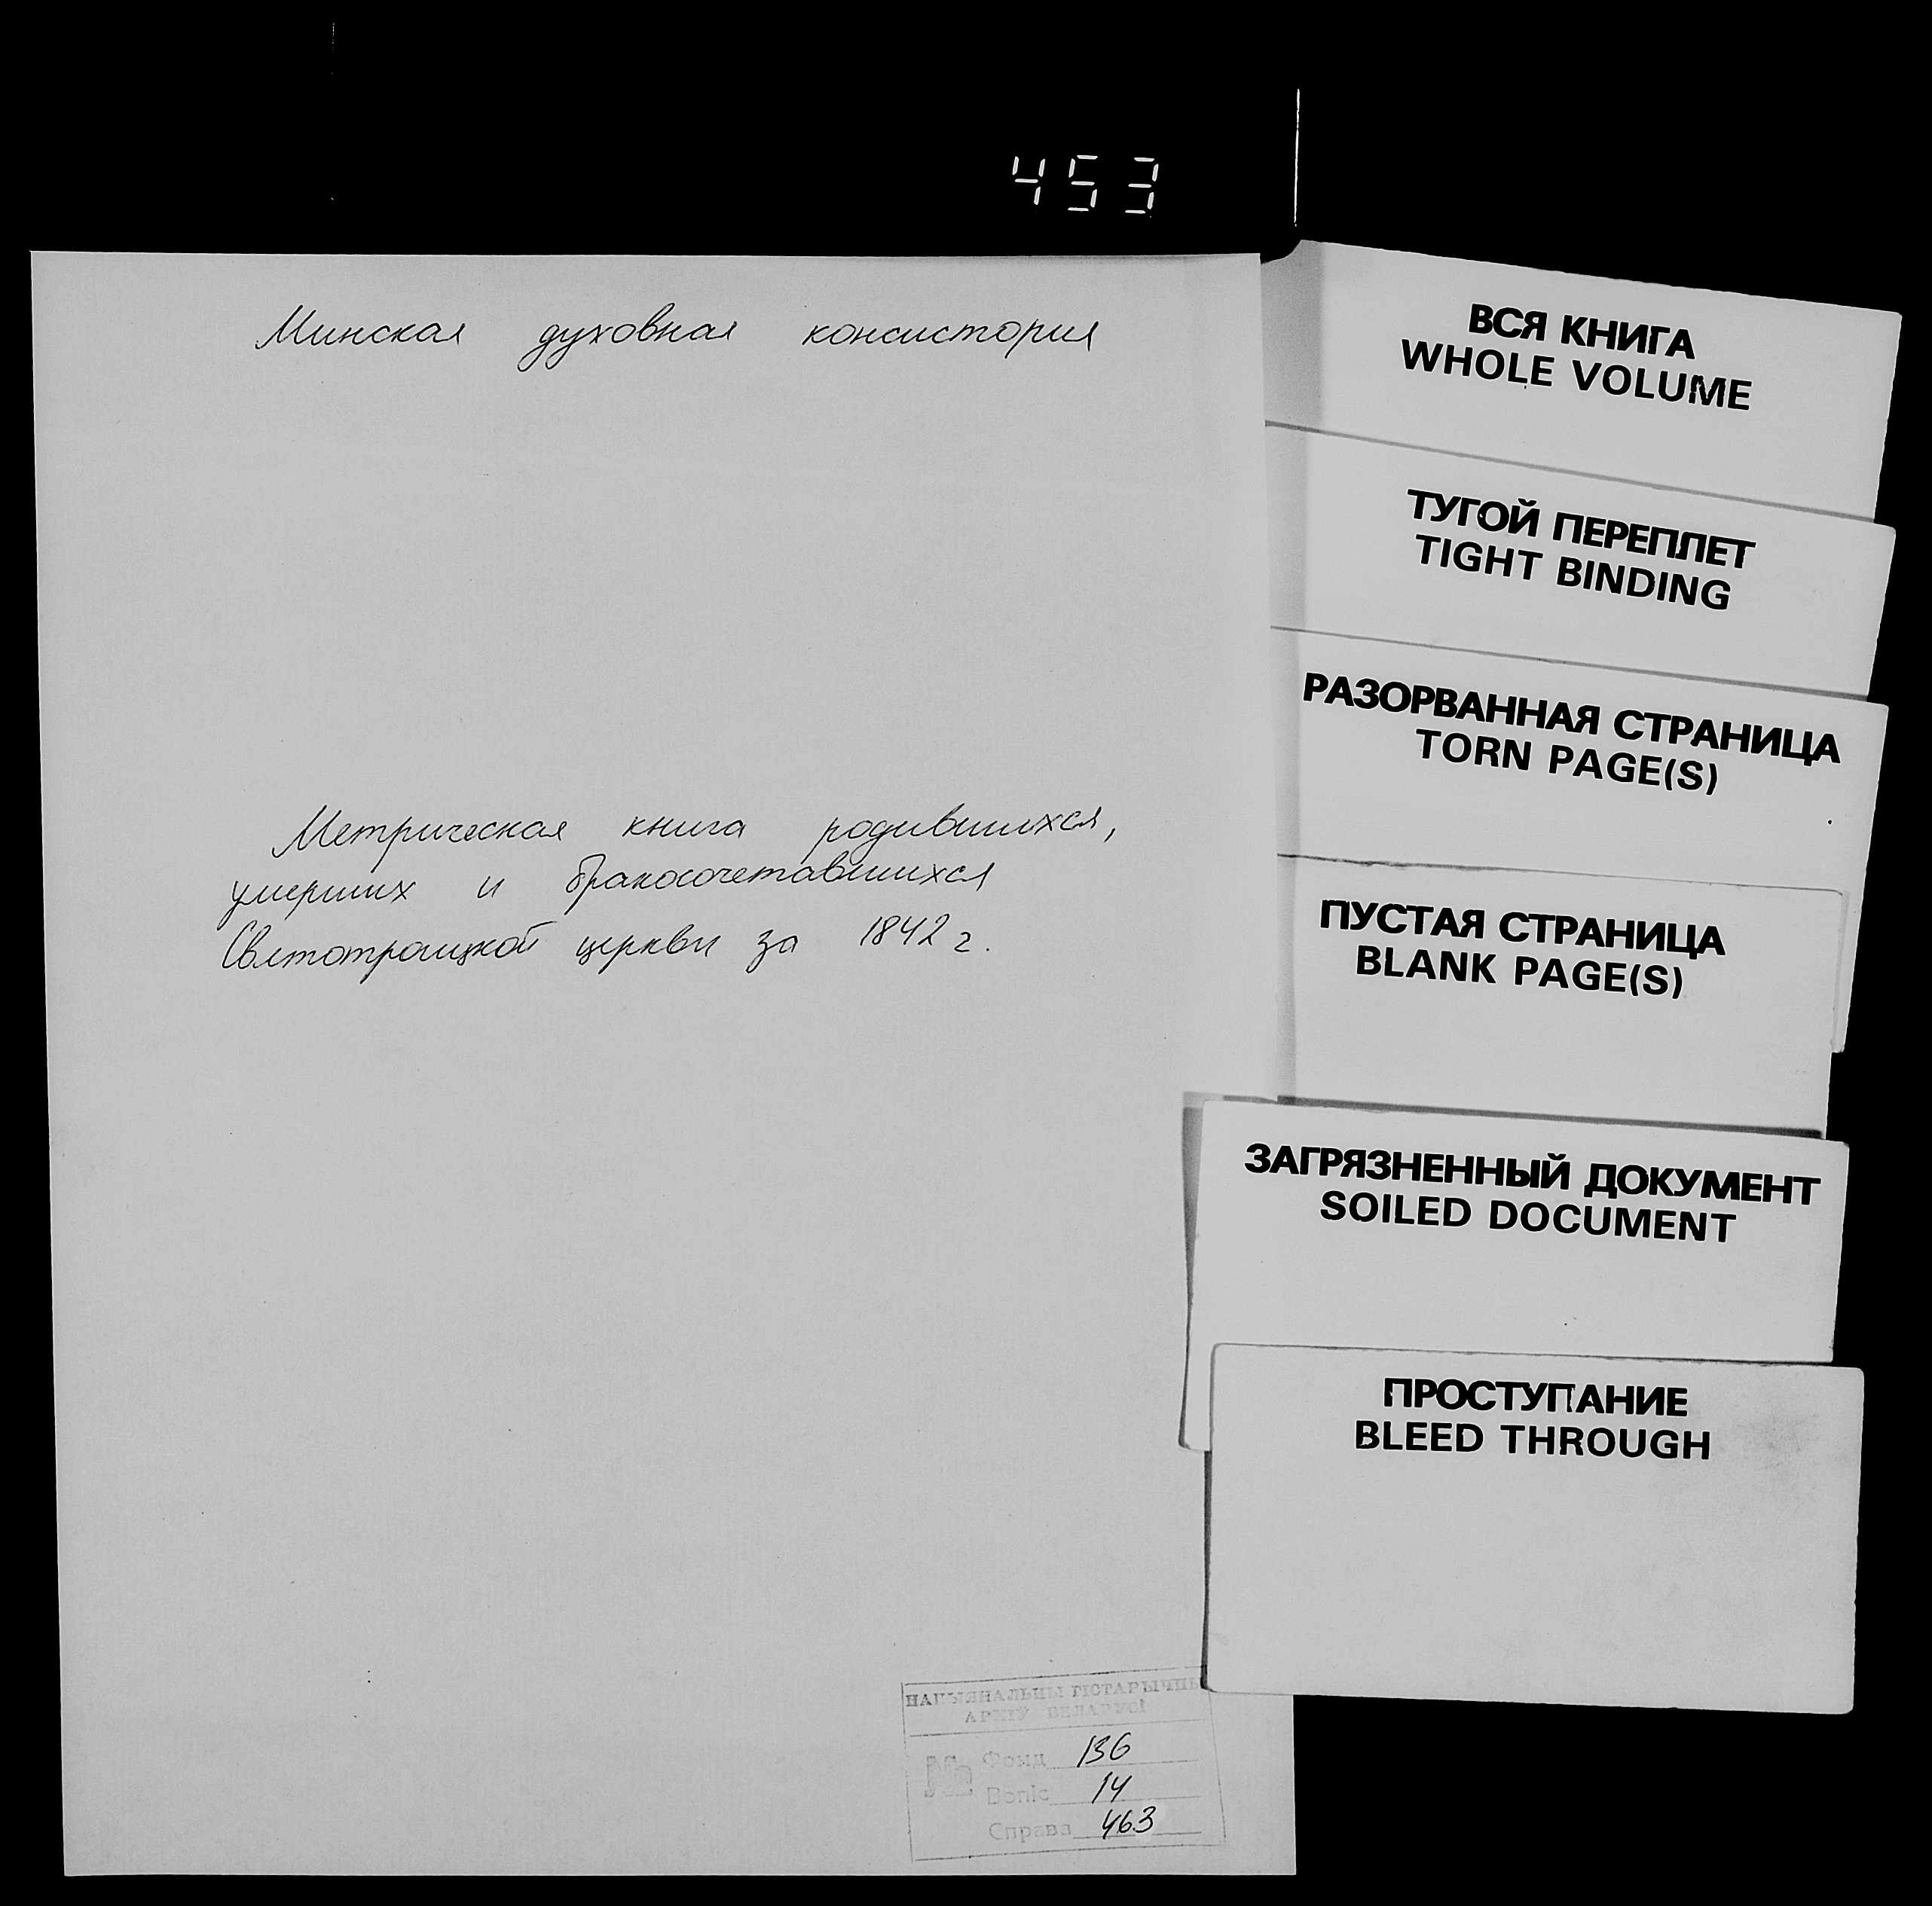 453
Минская духовная консистория
Метрическая книга родившихся,
умерших и бракосочетавшихся
Святотроицкой церкви за 1842 г.
НАЦЫЯНАЛЬНЫ ГІСТАРЫЧНЫ
АРХІЎ БЕЛАРУСІ
№ Фонд 136
Вопіс 14
Справа 463
ВСЯ КНИГА
WHOLE VOLUME
ТУГОЙ ПЕРЕПЛЕТ
TIGHT BINDING
РАЗОРВАННАЯ СТРАНИЦА
TORN PAGE(S)
ПУСТАЯ СТРАНИЦА
BLANK PAGE(S)
ЗАГРЯЗНЕННЫЙ ДОКУМЕНТ
SOILED DOCUMENT
ПРОСТУПАНИЕ
BLEED THROUGH